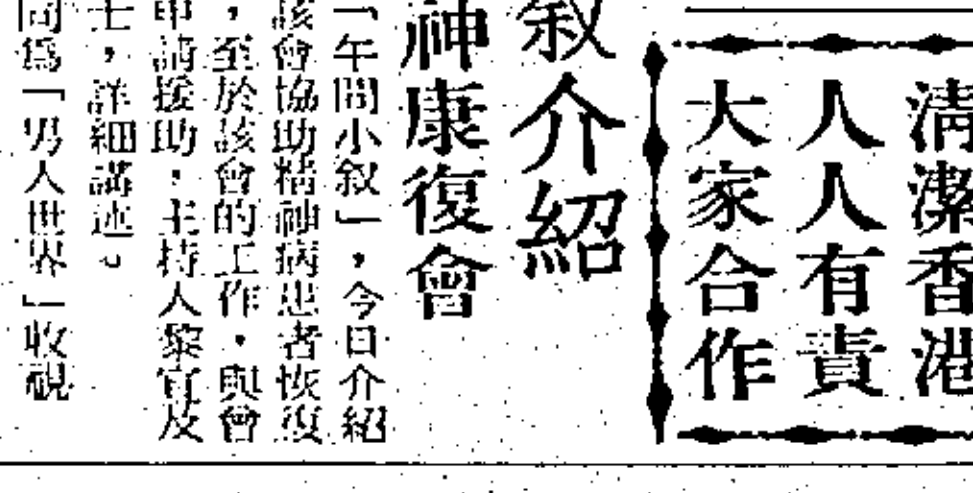 清潔香港
人人有責
大家合作
敍介紹
神康復會
「午間小敍」，今日介紹
該會協助精神病患者恢復
，至於該會的工作，與曾
申請援助，主持人黎宜及
士，詳細講述。
同為「男人世界」收視